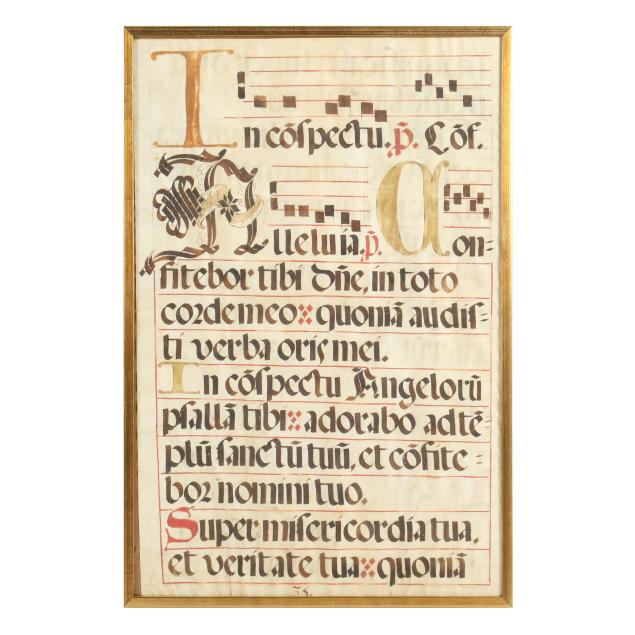 In cõspectu. p̃. Cõf.
Alleluia. p̃. Con-
fitebor tibi Dñe, in toto
corde meo: quoniã audis-
ti verba oris mei.
In cõspectu Angelorũ
psallã tibi: adorabo ad tẽ-
plũ sanctũ tuũ, et cõfite-
bor nomini tuo.
Super misericordia tua,
et veritate tua: quoniã